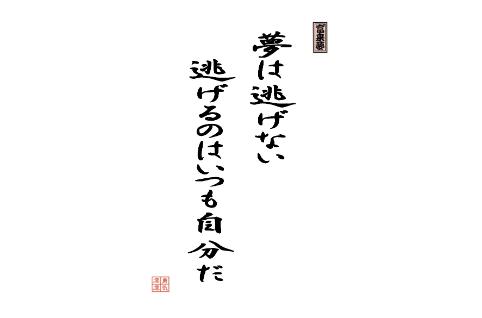 夢は逃げない
逃げるのはいつも自分だ